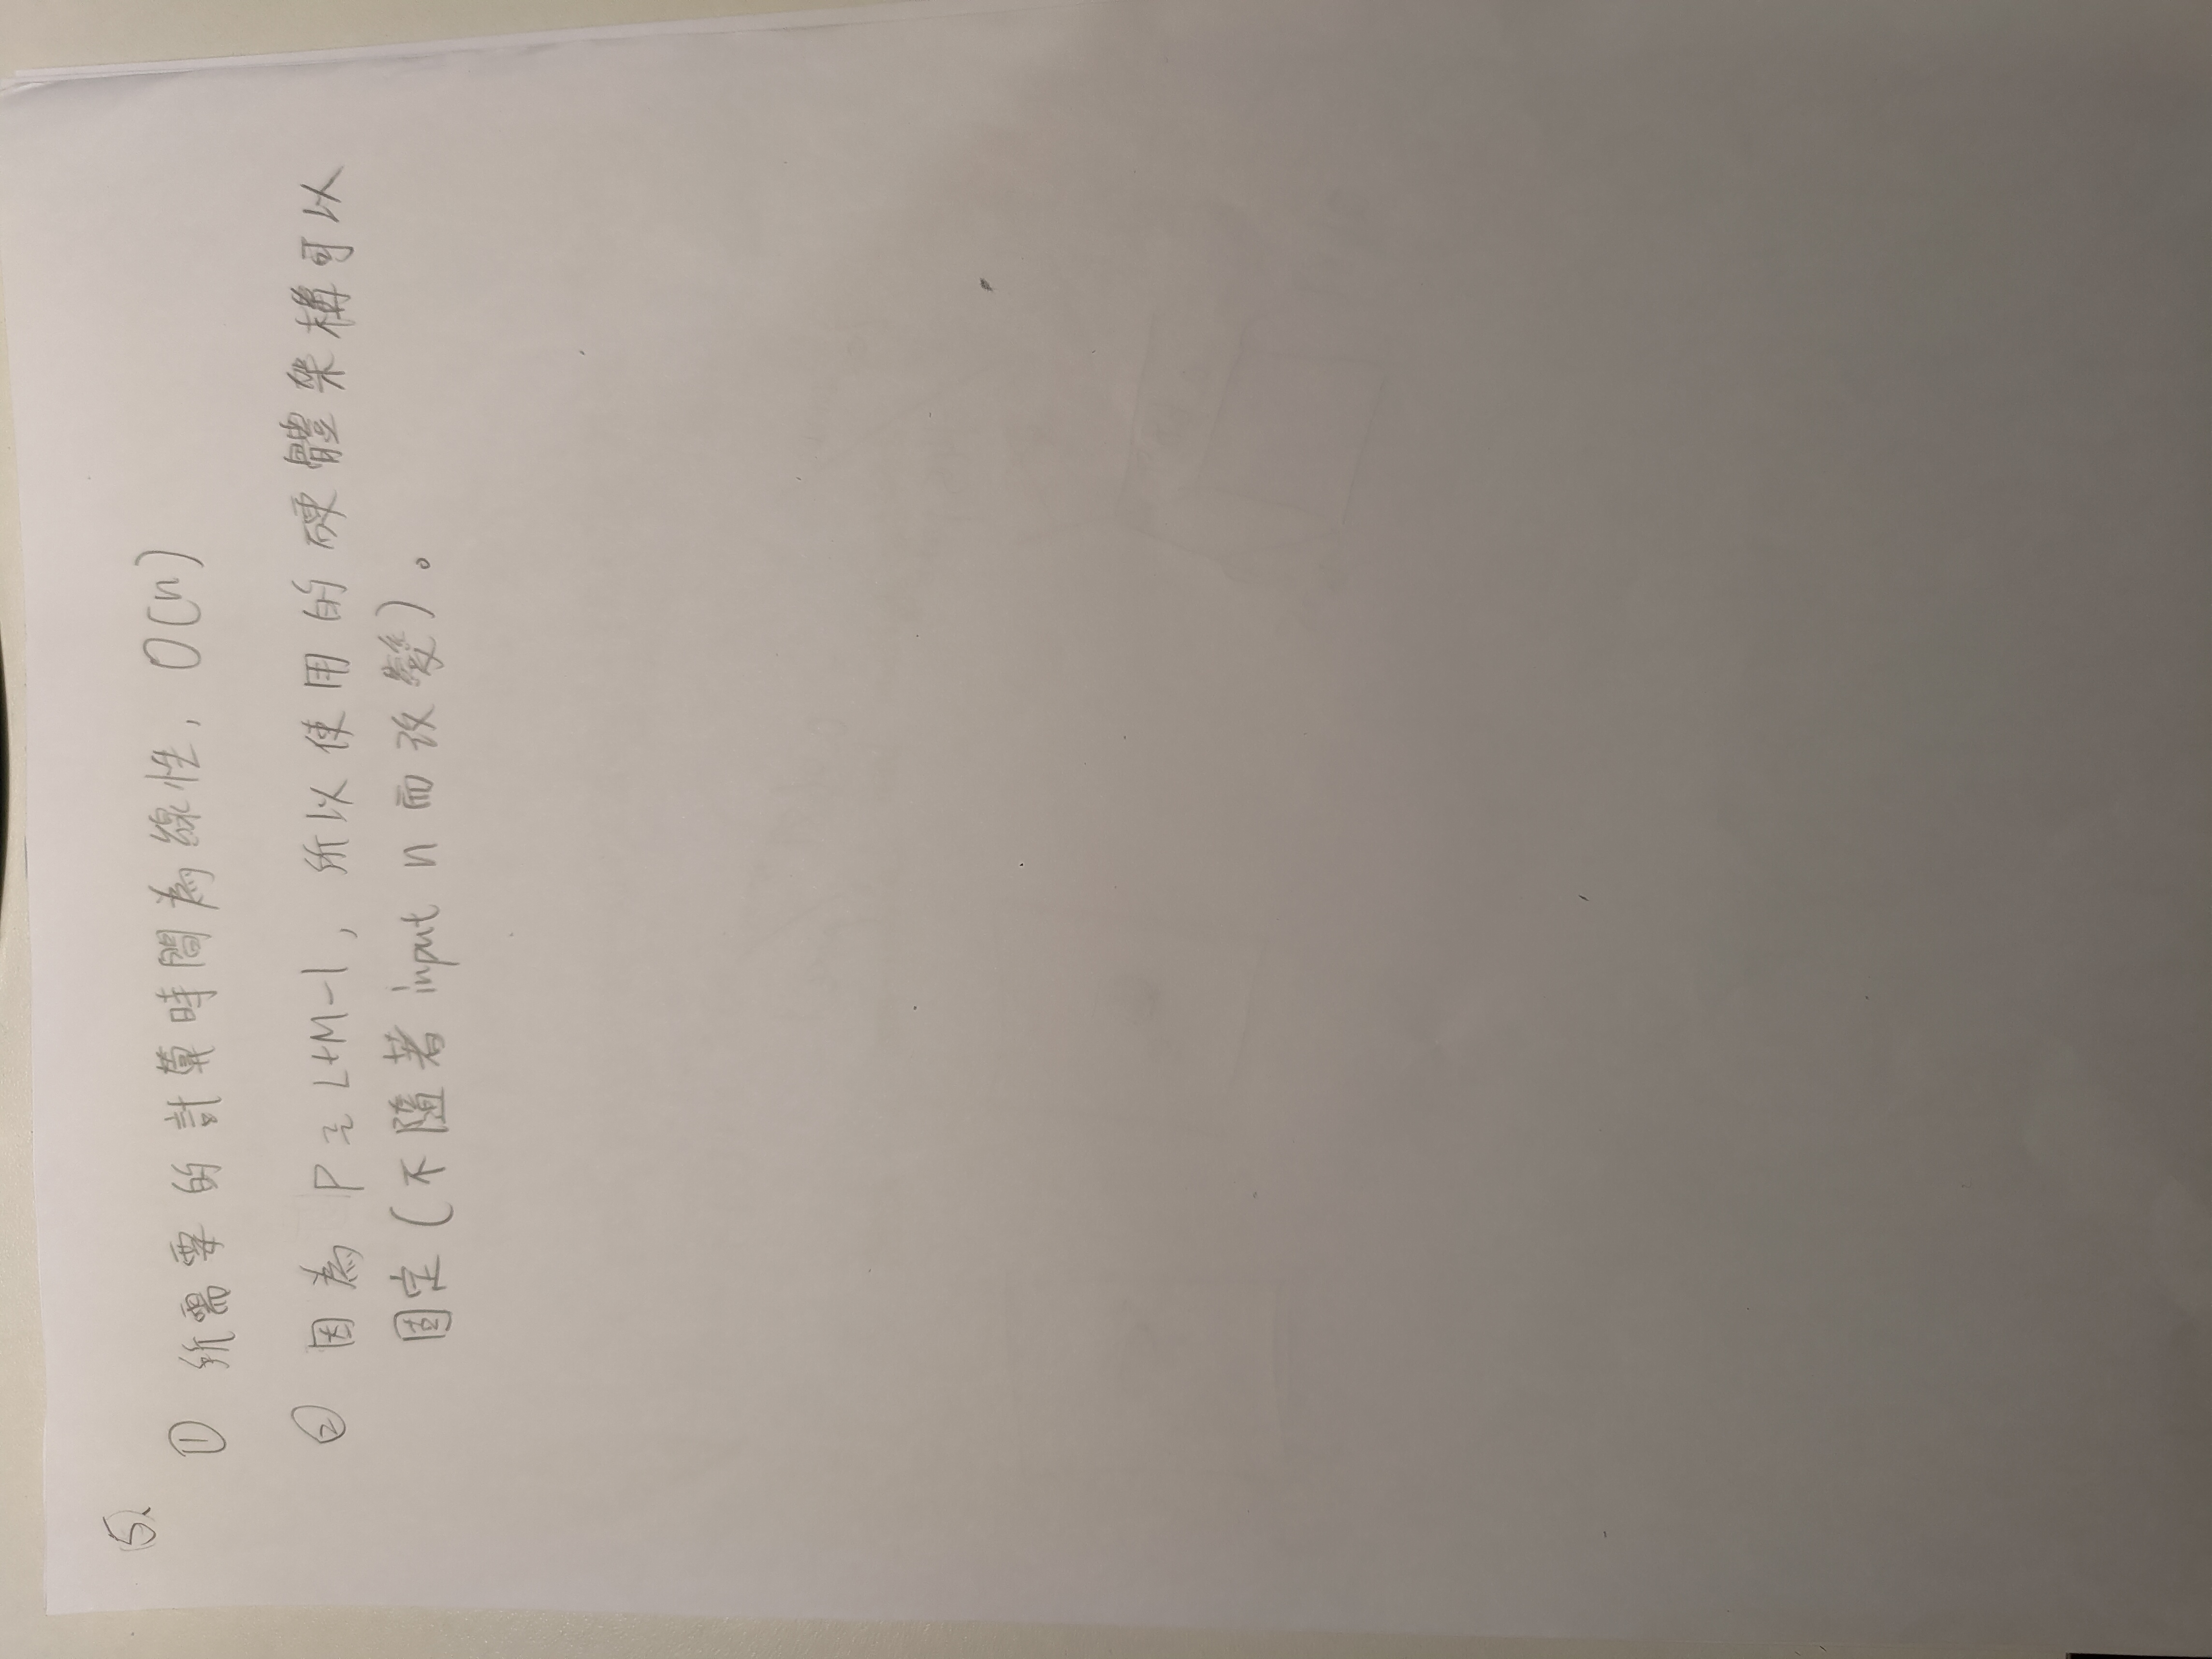 5.
① 所需要的計算時間為線性, O(n)
② 因為 P ≥ L+M-1, 所以使用的硬體架構可以
固定(不隨著 input n 而改變)。